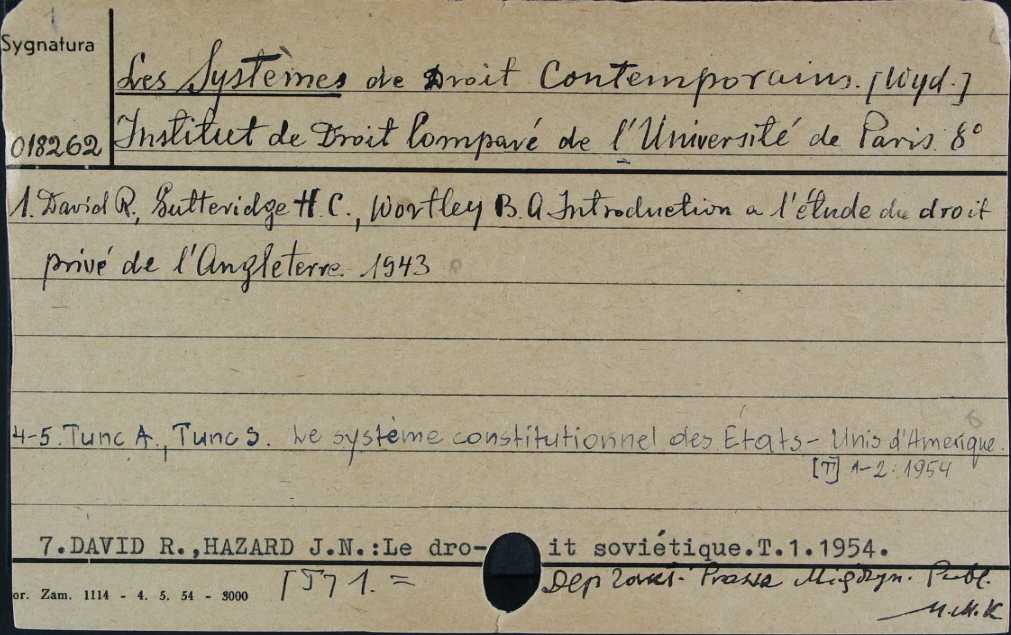 1
Sygnatura
Les Systèmes de Droit Contemporains. [Wyd.]
018262
Institut de Droit Comparé de l'Université de Paris. 8°
1. David R., Gutteridge H.C., Wortley B.A. Introduction a l'étude du droit
privé de l'Angleterre. 1943
6
4-5. Tunc A., Tunc S. Le système constitutionnel des États-Unis d'Amerique.
[T] 1-2: 1954
7.DAVID R.,HAZARD J.N.:Le dro- it soviétique.T.1.1954.
or. Zam. 1114 - 4. 5. 54 - 3000
[T] 1. =
Prawa Międzyn. Publ.
U.M.K